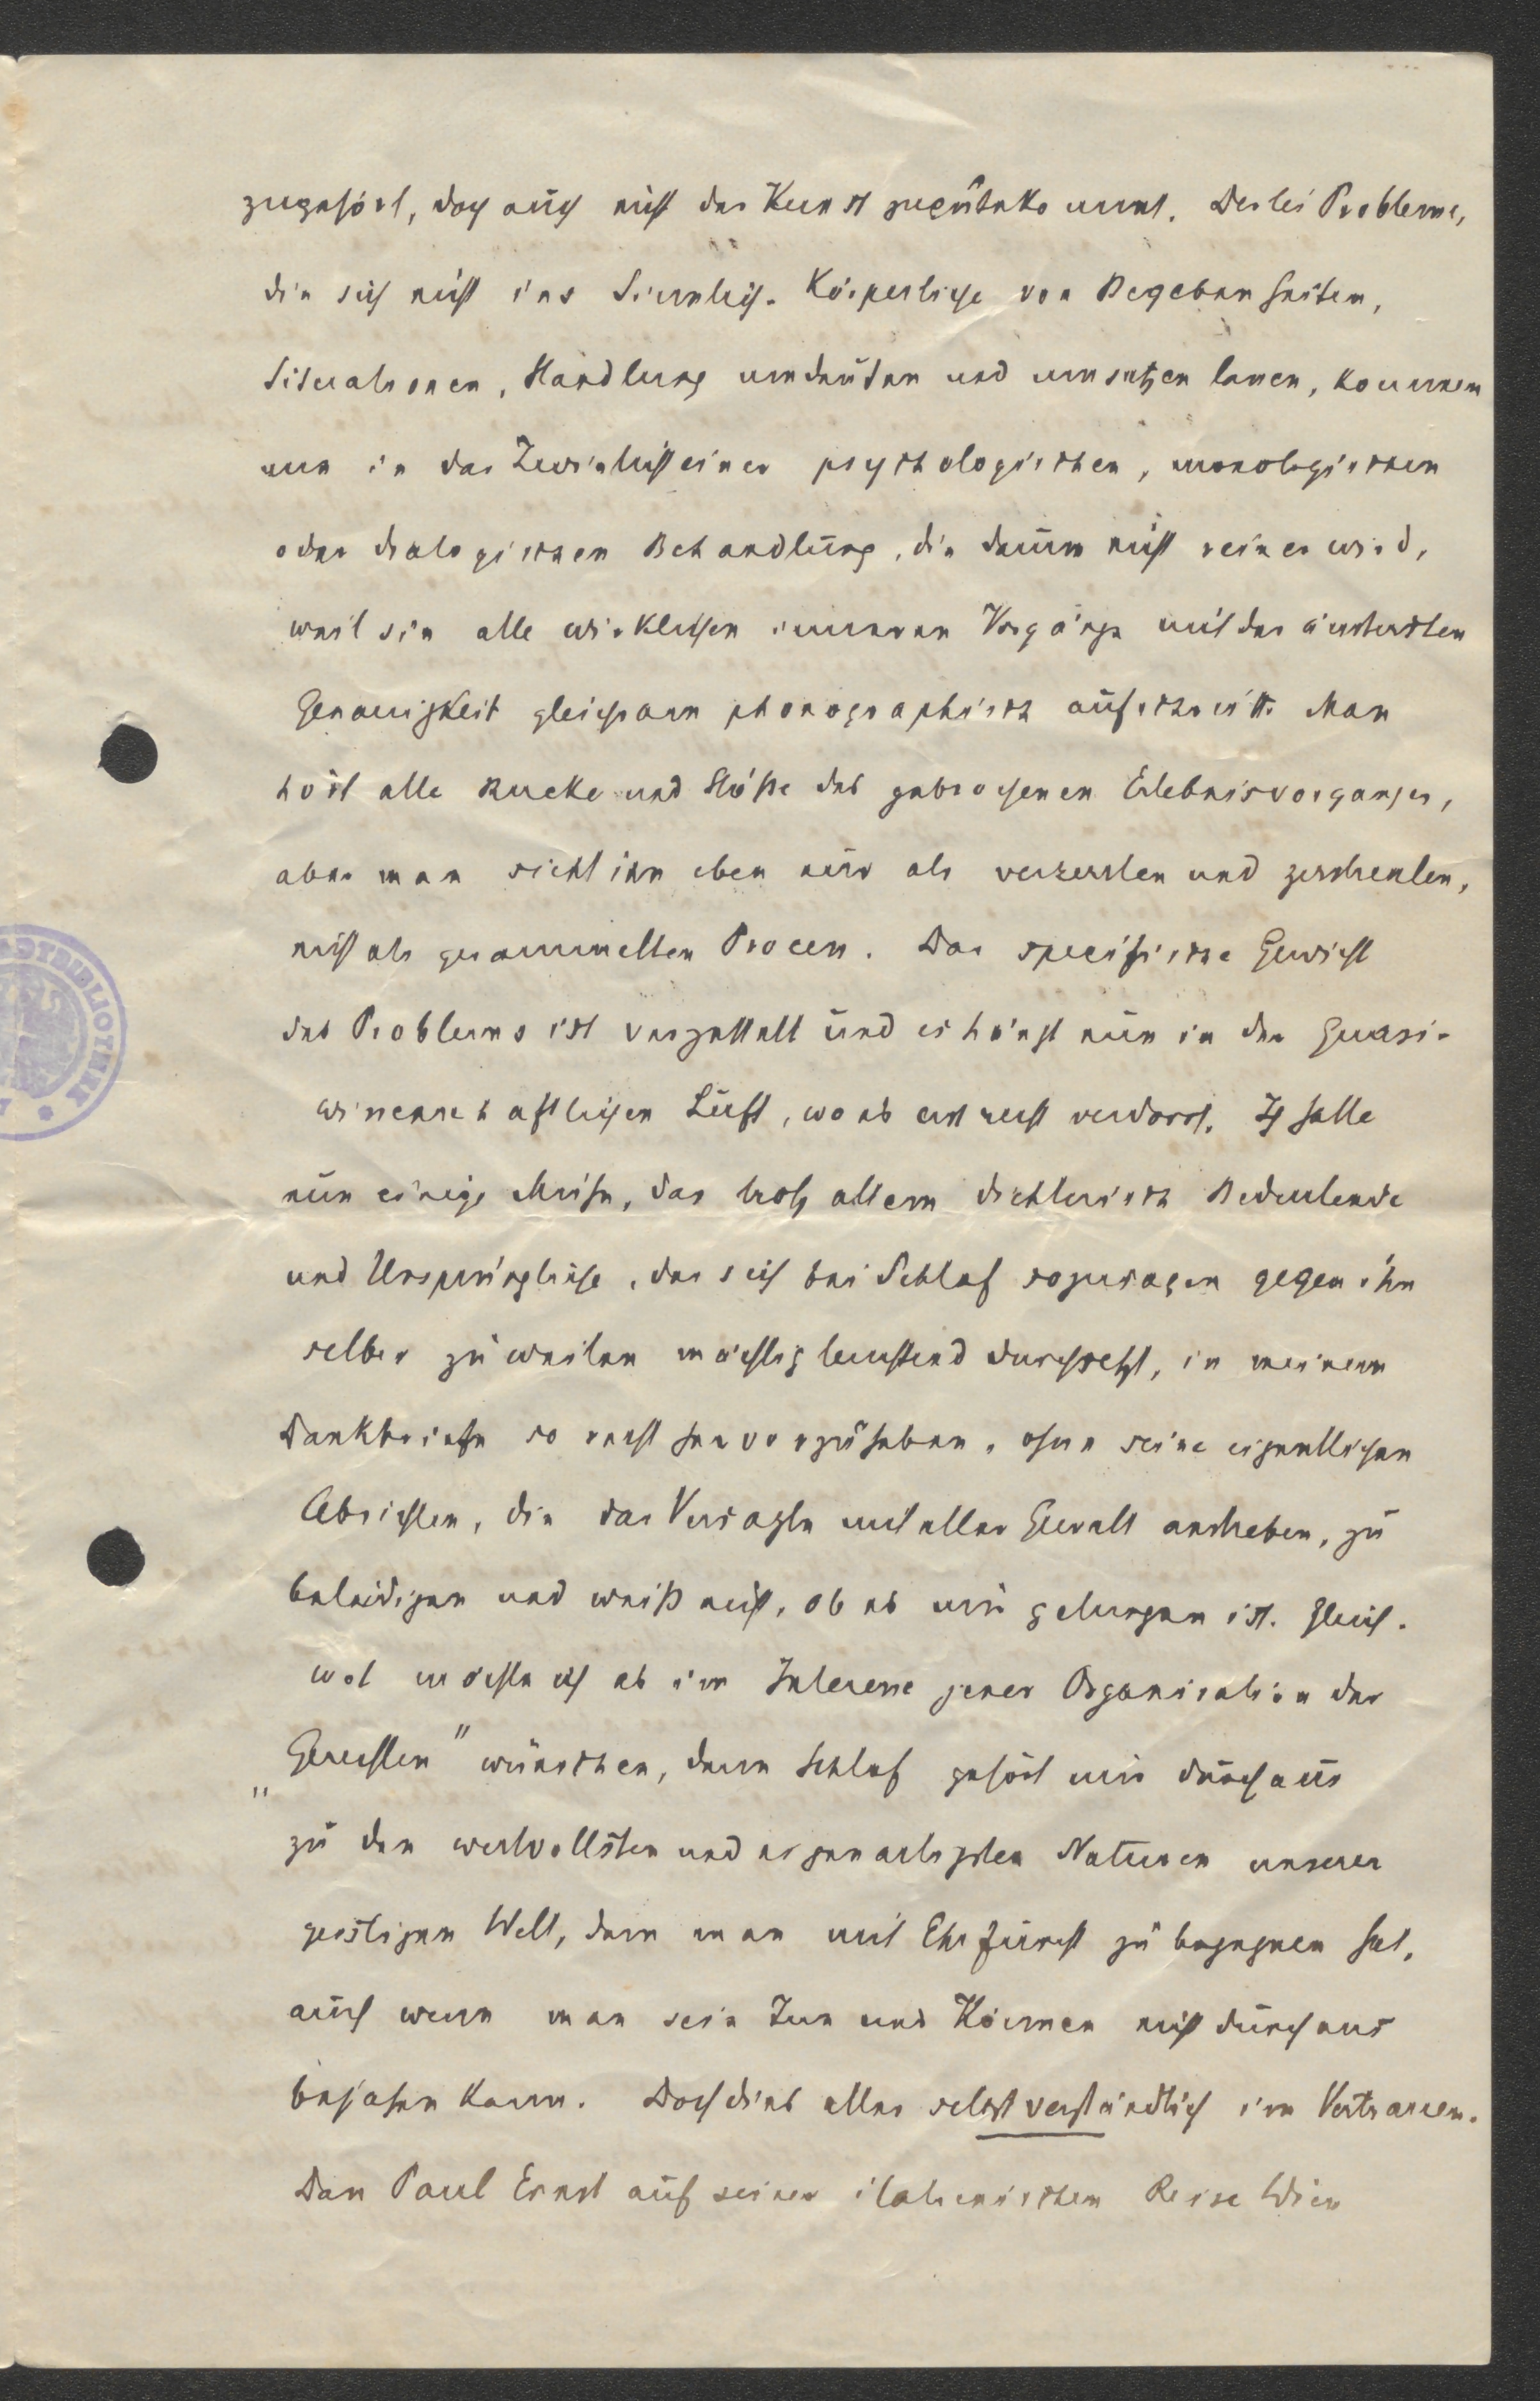 zugehört, doch auch nicht der Kunst zugute kommt. Derlei Probleme,
die sich nicht ins Sinnlich-Körperliche von Begebenheiten,
Situationen, Handlung umdeuten und umsetzen lassen, kommen
nun in das Zwielicht einer psychologischen, monologischen
oder dialogischen Behandlung, die darum nicht reiner wird,
weil sie alle wirklichen inneren Vorgänge mit der äussersten
Genauigkeit gleichsam phonographisch aufschreibt. Man
hört alle Rucke und Stöße des gebrochenen Erlebnisvorganges,
aber man sieht ihn eben nur als verzerrten und zerstreuten,
nicht als gesammelten Process. Das specifische Gewicht
des Problems ist verzettelt und es hängt nun in der quasi-
wissenschaftlichen Luft, wo es erst recht verdorrt. Ich hatte
nun einige Mühe, das trotz allem dichterisch Bedeutende
und Ursprüngliche, das sich bei Schlaf sozusagen gegen ihn
selber zuweilen mächtig leuchtend durchsetzt, in meinem
Dankbriefe so recht hervorzuheben, ohne seine eigentlichen
Absichten, die das Versagte mit aller Gewalt anstreben, zu
beleidigen und weiß nicht, ob es mir gelungen ist. Gleich-
wol möchte ich es im Interesse jener Organisation der
„Gerechten" wünschen, denn Schlaf gehört mir durchaus
zu den wertvollsten und eigenartigsten Naturen unserer
geistigen Welt, dem man mit Ehrfurcht zu begegnen hat,
auch wenn man sein Tun und Können nicht durchaus
bejahen kann. Doch dies alles selbstverständlich im Vertrauen.
Dass Paul Ernst auf seiner italienischen Reise Wien